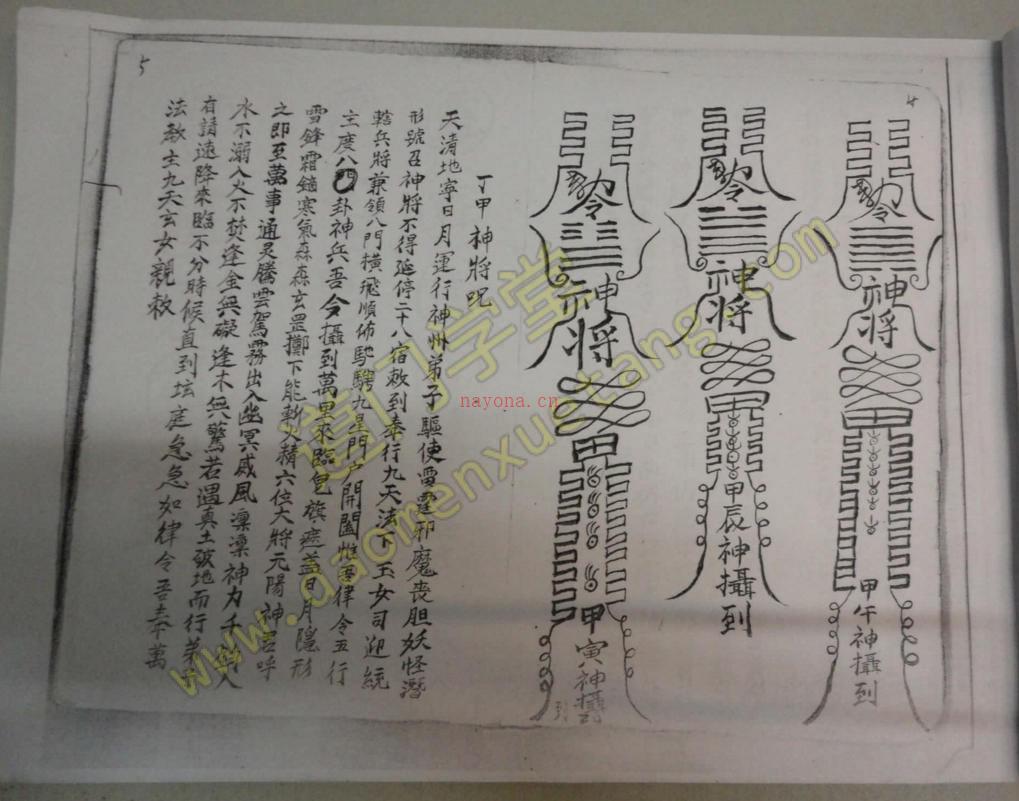 4
神將
甲午神攝到
神將
甲辰神攝到
神將
甲寅神攝到
5
丁甲神將咒
天清地寧日月運行神州弟子驅使雷霆邪魔喪胆妖怪潛
形號召神將不得延停二十八宿敕到奉行九天法下玉女司迎統
轄兵將兼領八門橫飛順佈馳騁九星門户開闔惟吾律令五行
主度八卦神兵吾今攝到萬里來臨皂旗遮盖日月隱形
雪鋒霜鏑寒氣森森玄罡擲下能斬火精六位大將元陽神君呼
之即至萬事通灵騰雲駕霧出入幽冥威風凜凜神力千鈞入
水不溺入火不焚逢金無礙逢木無驚若遇真土破地而行弟子
有請速降來臨不分時候直到坛庭急急如律令吾奉萬
法教主九天玄女親敕
道门学堂
www.daomenxuetang.com
nayona.cn